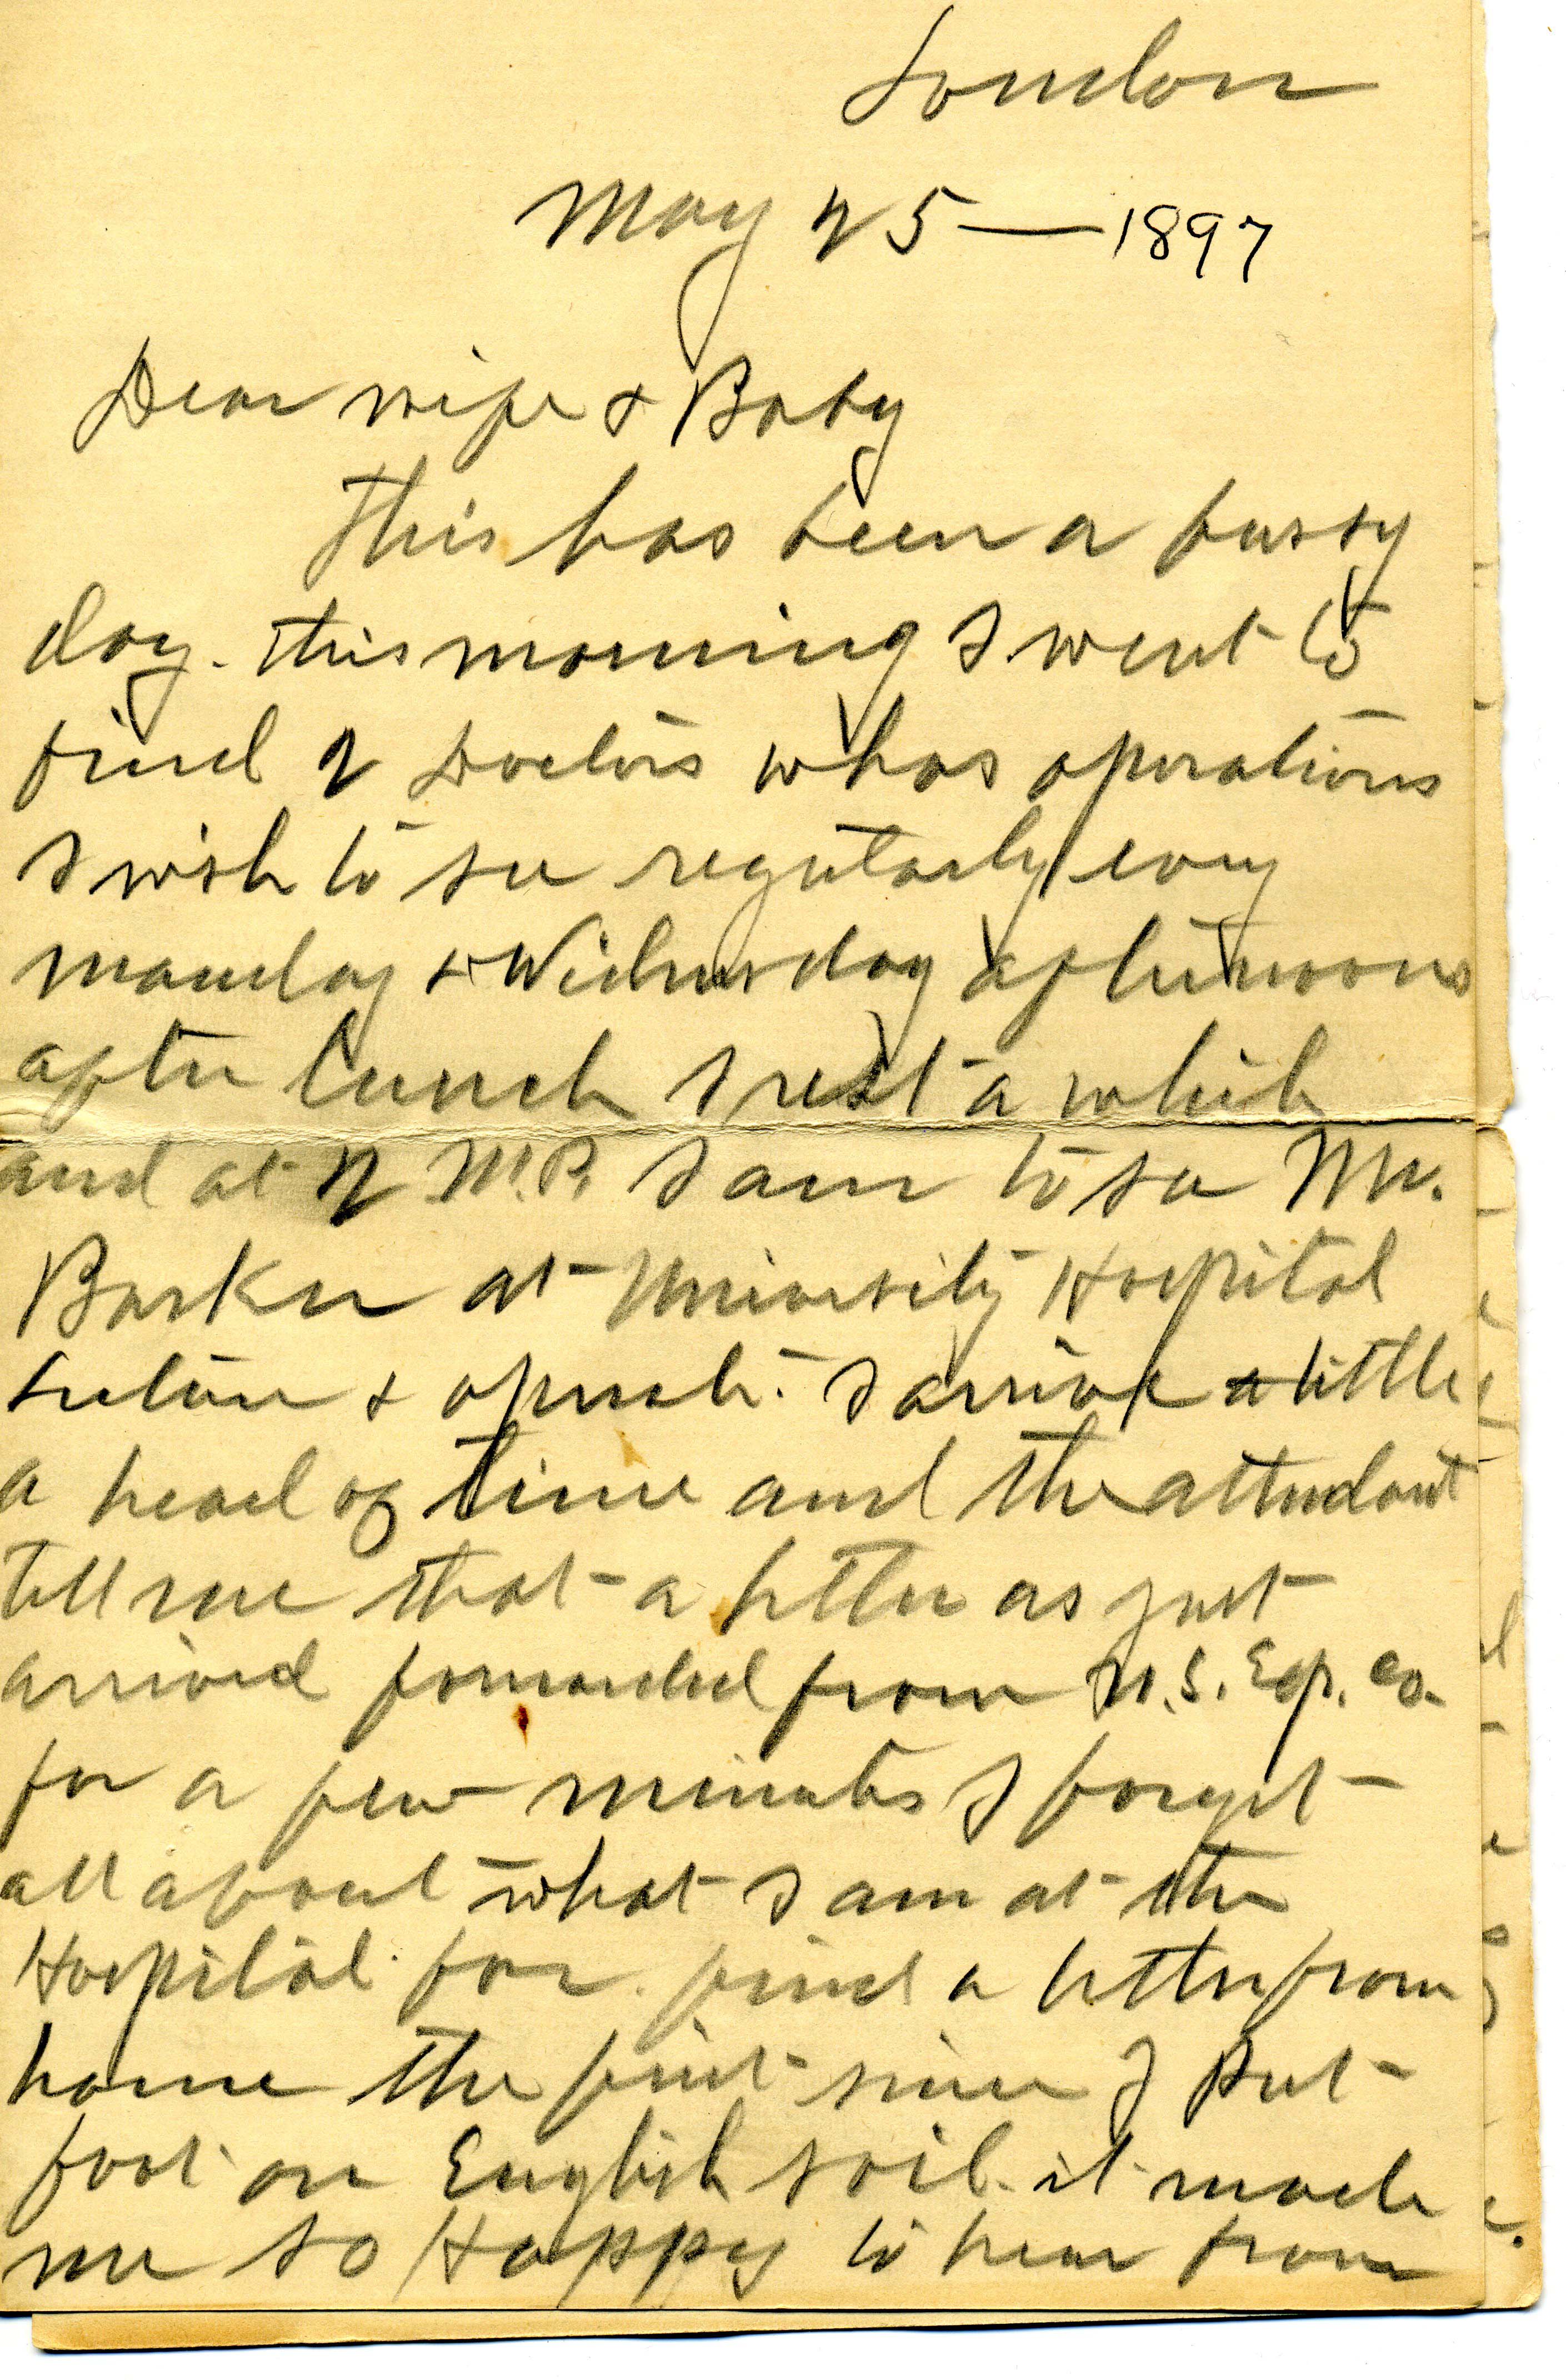 London
May 25 — 1897
Dear wife & Baby
This has been a bussy
day. this morning I went to
find 2 Doctors whos operations
I wish to see regularly every
monday & Wednesday afternoons
after lunch I rest a while
and at 2 M.P. I am to see Mr.
Barker at University Hospital
& operate. I arrive a little
a head of time and the attendant
tell me that a letter as just
arrived forwarded from U.S. Exp. Co.
for a few minutes I forget
all about what I am at the
Hospital for. find a letter from
home the first since I put
foot on English soil. it made
me so Happy to hear from